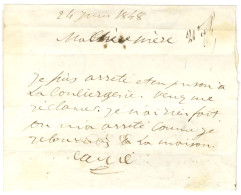 24 juin 1848
Ma chère mère
je suis arrêté et en prison à
la Conciergerie. Venez me
réclamer je n'ai rien fait
on m'a arrêté comme je
à la maison